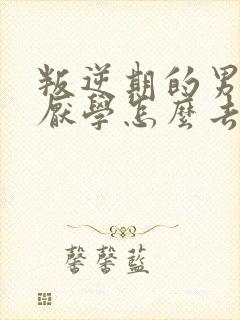 叛逆期的男
厭學怎麼去
馨馨藍